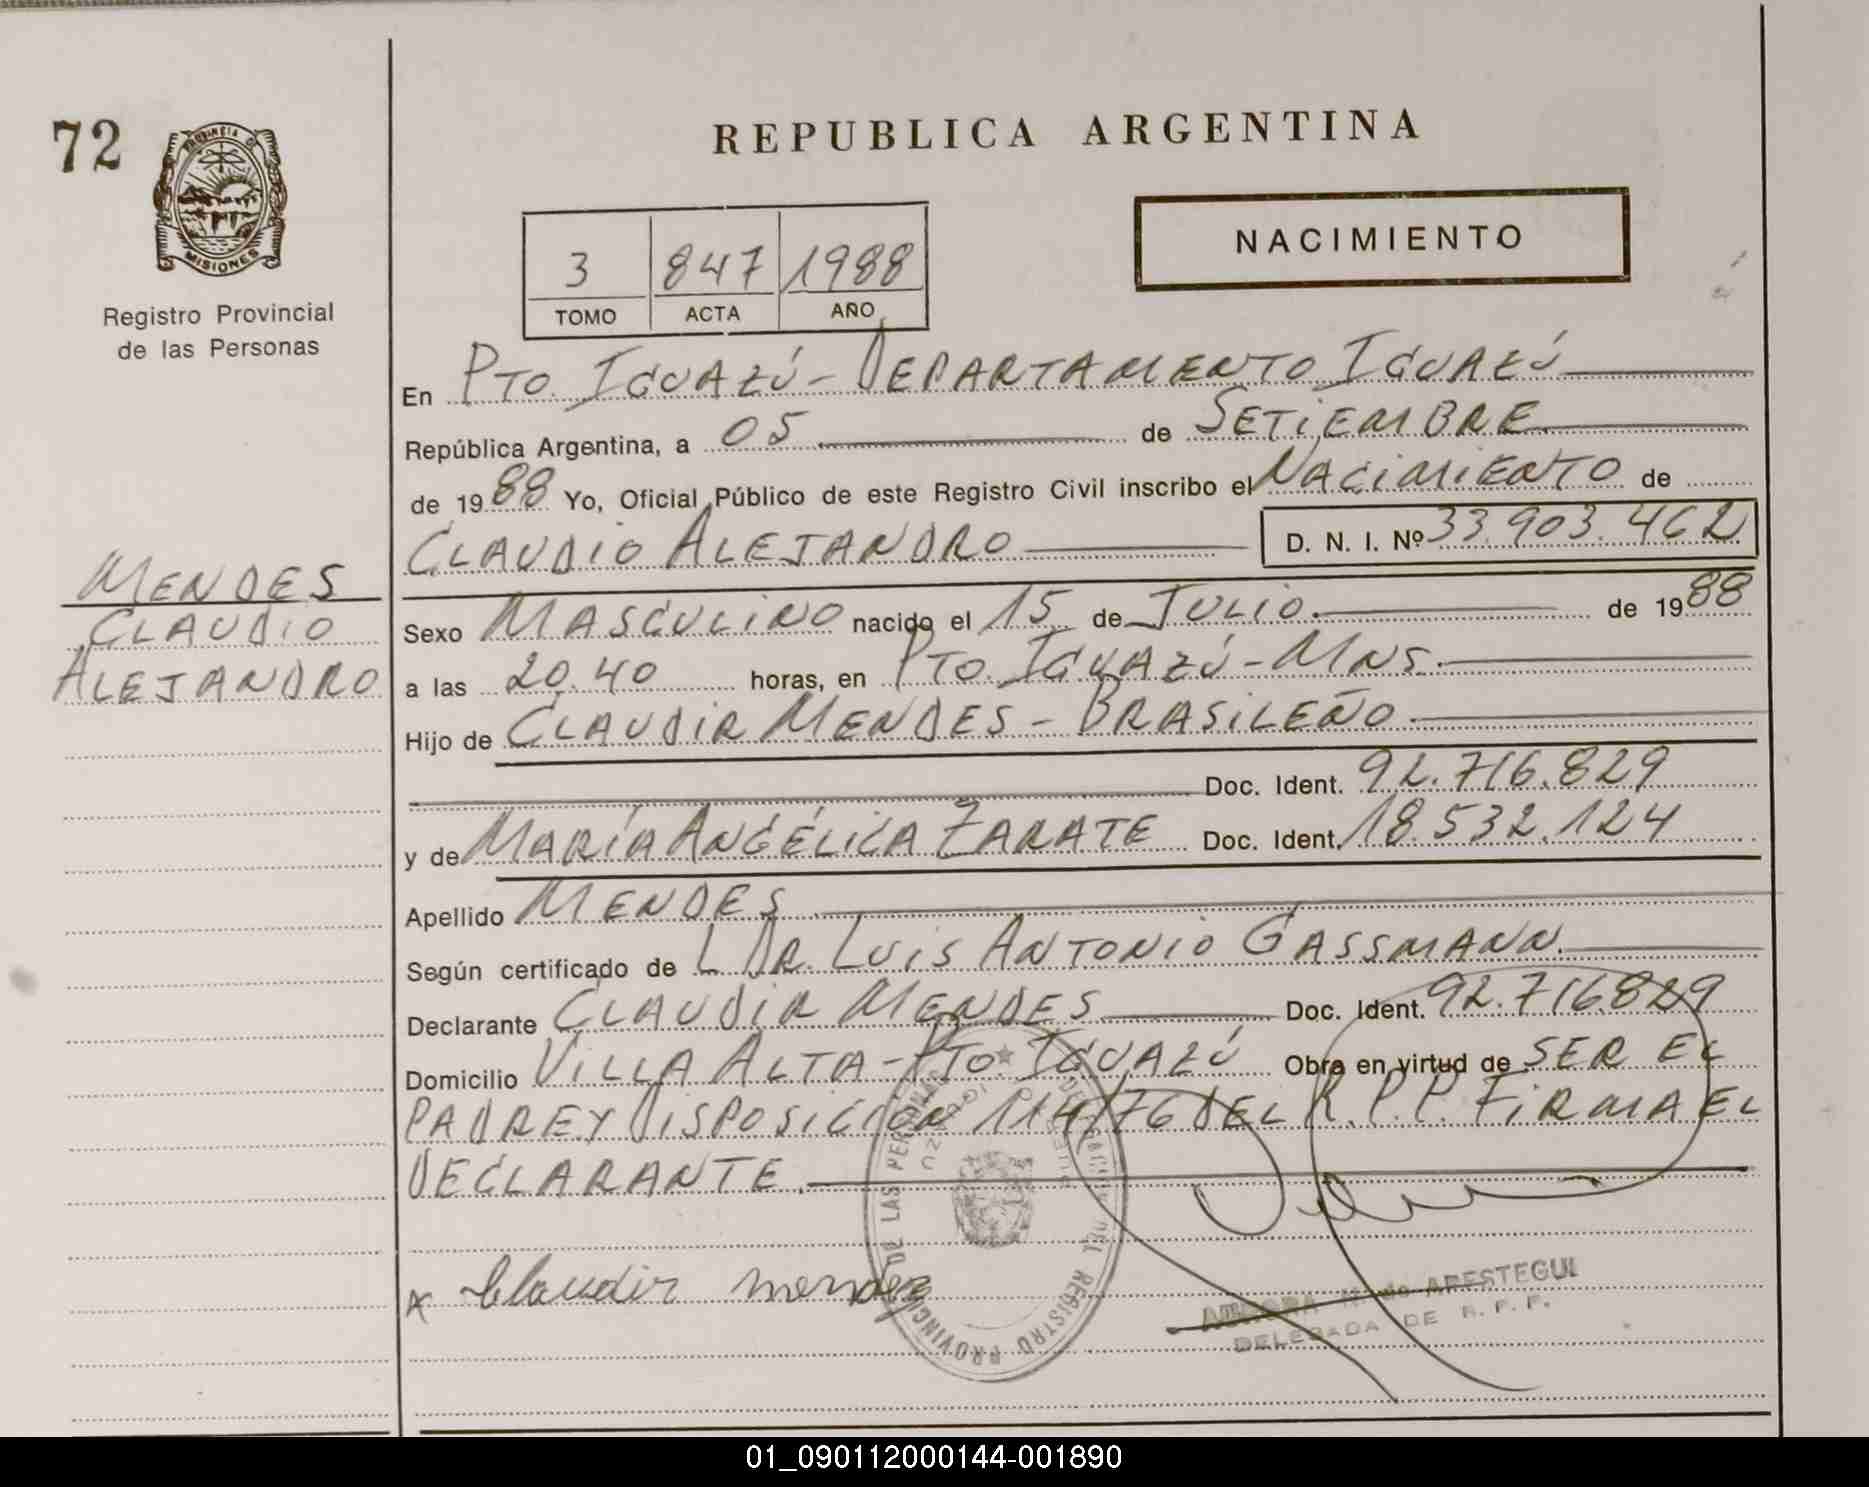 72
PROVINCIA DE
MISIONES
Registro Provincial
de las Personas
REPUBLICA ARGENTINA
3 847 1988
TOMO ACTA AÑO
NACIMIENTO
En PTO. IGUAZÚ - DEPARTAMENTO IGUAZÚ
República Argentina, a 05 de SETIEMBRE
de 1988 Yo, Oficial Público de este Registro Civil inscribo el NACIMIENTO de
CLAUDIO ALEJANDRO D. N. I. Nº 33.903.462
MENDES
CLAUDIO
ALEJANDRO
Sexo MASCULINO nacido el 15 de JULIO de 1988
a las 20.40 horas, en PTO. IGUAZÚ - MNS.
Hijo de CLAUDIR MENDES - BRASILEÑO
Doc. Ident. 92.716.829
y de MARÍA ANGÉLICA ZARATE Doc. Ident. 18.532.124
Apellido MENDES
Según certificado de L DR. LUIS ANTONIO GASSMANN.
Declarante CLAUDIR MENDES Doc. Ident. 92.716.829
Domicilio VILLA ALTA - PTO. IGUAZÚ Obra en virtud de SER EL
PADRE Y DISPOSICIÓN 114/76 DEL R.P.P. FIRMA EL
DECLARANTE.
x Claudir mendez
REGISTRO PROVINCIAL DE LAS PERSONAS
de ARESTEGUI
DELEGADA DE R. P. P.
01_090112000144-001890